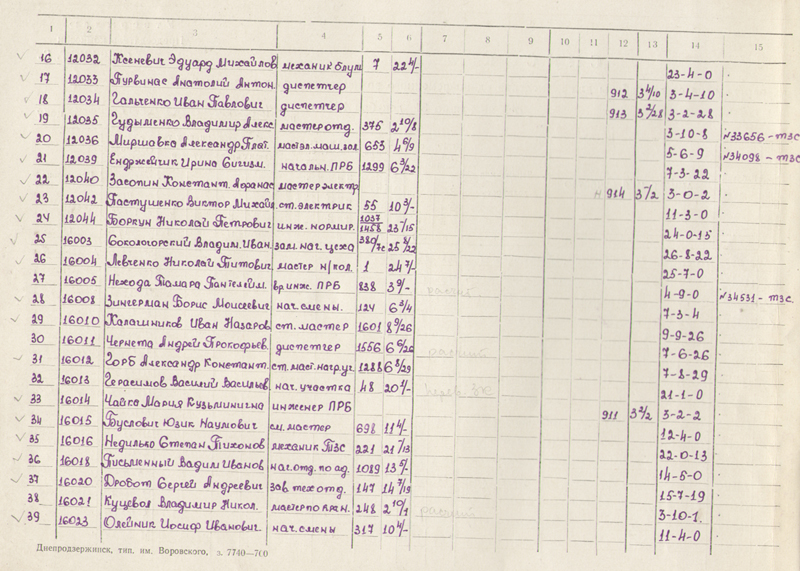 1 2 3 4 5 6 7 8 9 10 11 12 13 14 15
16 12032 Ксеневич Эдуард Михайлов механик 7 22 4/- 23-4-0
17 12033 Турвинас Анатолий Антон. диспетчер 912 3 4/10 3-4-10
18 12034 Гальченко Иван Павлович диспетчер 913 3 2/28 3-2-28
19 12035 Гудыменко Владимир Алекс мастер отд. 375 2 10/8 3-10-8 №33656-ТЗС
20 12036 Миршавка Александр Плат. 653 4 6/9 5-6-9 №34098-ТЗС
21 12039 Енджейчик Ирина Сигизм. начальн. ПРБ 1299 6 3/22 7-3-22
22 12040 Засопин Константин. Афанас мастер электр.
23 12042 Пастушенко Виктор Михайл ст. электрик 55 10 3/- 914 3 7/2 3-0-2
24 12044 Боркун Николай Петрович инж. нормир. 1037 1458 23 -/15 11-3-0
25 16003 Сокологорский Владим. Иван. зам. нач. цеха 380/тс 25 8/22 24-0-15
26 16004 Левченко Николай Титович мастер н/кол. 1 24 7/- 26-8-22
27 16005 Нехода Тамара Пантелейм. инж. ПРБ 838 3 9/- 25-7-0
28 16008 Зингерман Борис Моисеевич нач. смены. 124 6 3/4 4-9-0 №34531-ТЗС.
29 16010 Калашников Иван Назаров ст. мастер 1601 8 9/26 7-3-4
30 16011 Чернета Андрей Прокофьев. диспетчер 1556 6 6/26 9-9-26
31 16012 Горб Александр Константин. ст. маст. нагр. уг 1288 6 8/29 7-6-26
32 16013 Герасимов Василий Васильев. нач. участка 48 20 1/- 7-8-29
33 16014 Чайка Мария Кузьминична инженер ПРБ 21-1-0
34 16015 Буслович Юзик Наумович см. мастер 698 11 4/- 911 3 2/2 3-2-2
35 16016 Недилько Степан Тихонов механик ТЗС 221 21 -/13 12-4-0
36 16018 Письменный Вадим Иванов нач. отд. по ад. 1089 13 5/- 22-0-13
37 16020 Дробот Сергей Андреевич зав. тех. отд. 147 14 7/19 14-5-0
38 16021 Куцевол Владимир Никол. мастер по кран. 248 2 10/1 15-7-19
39 16023 Олейник Иосиф Иванович нач. смены 317 10 4/- 3-10-1.
11-4-0
Днепродзержинск, тип. им. Воровского, з. 7740—700